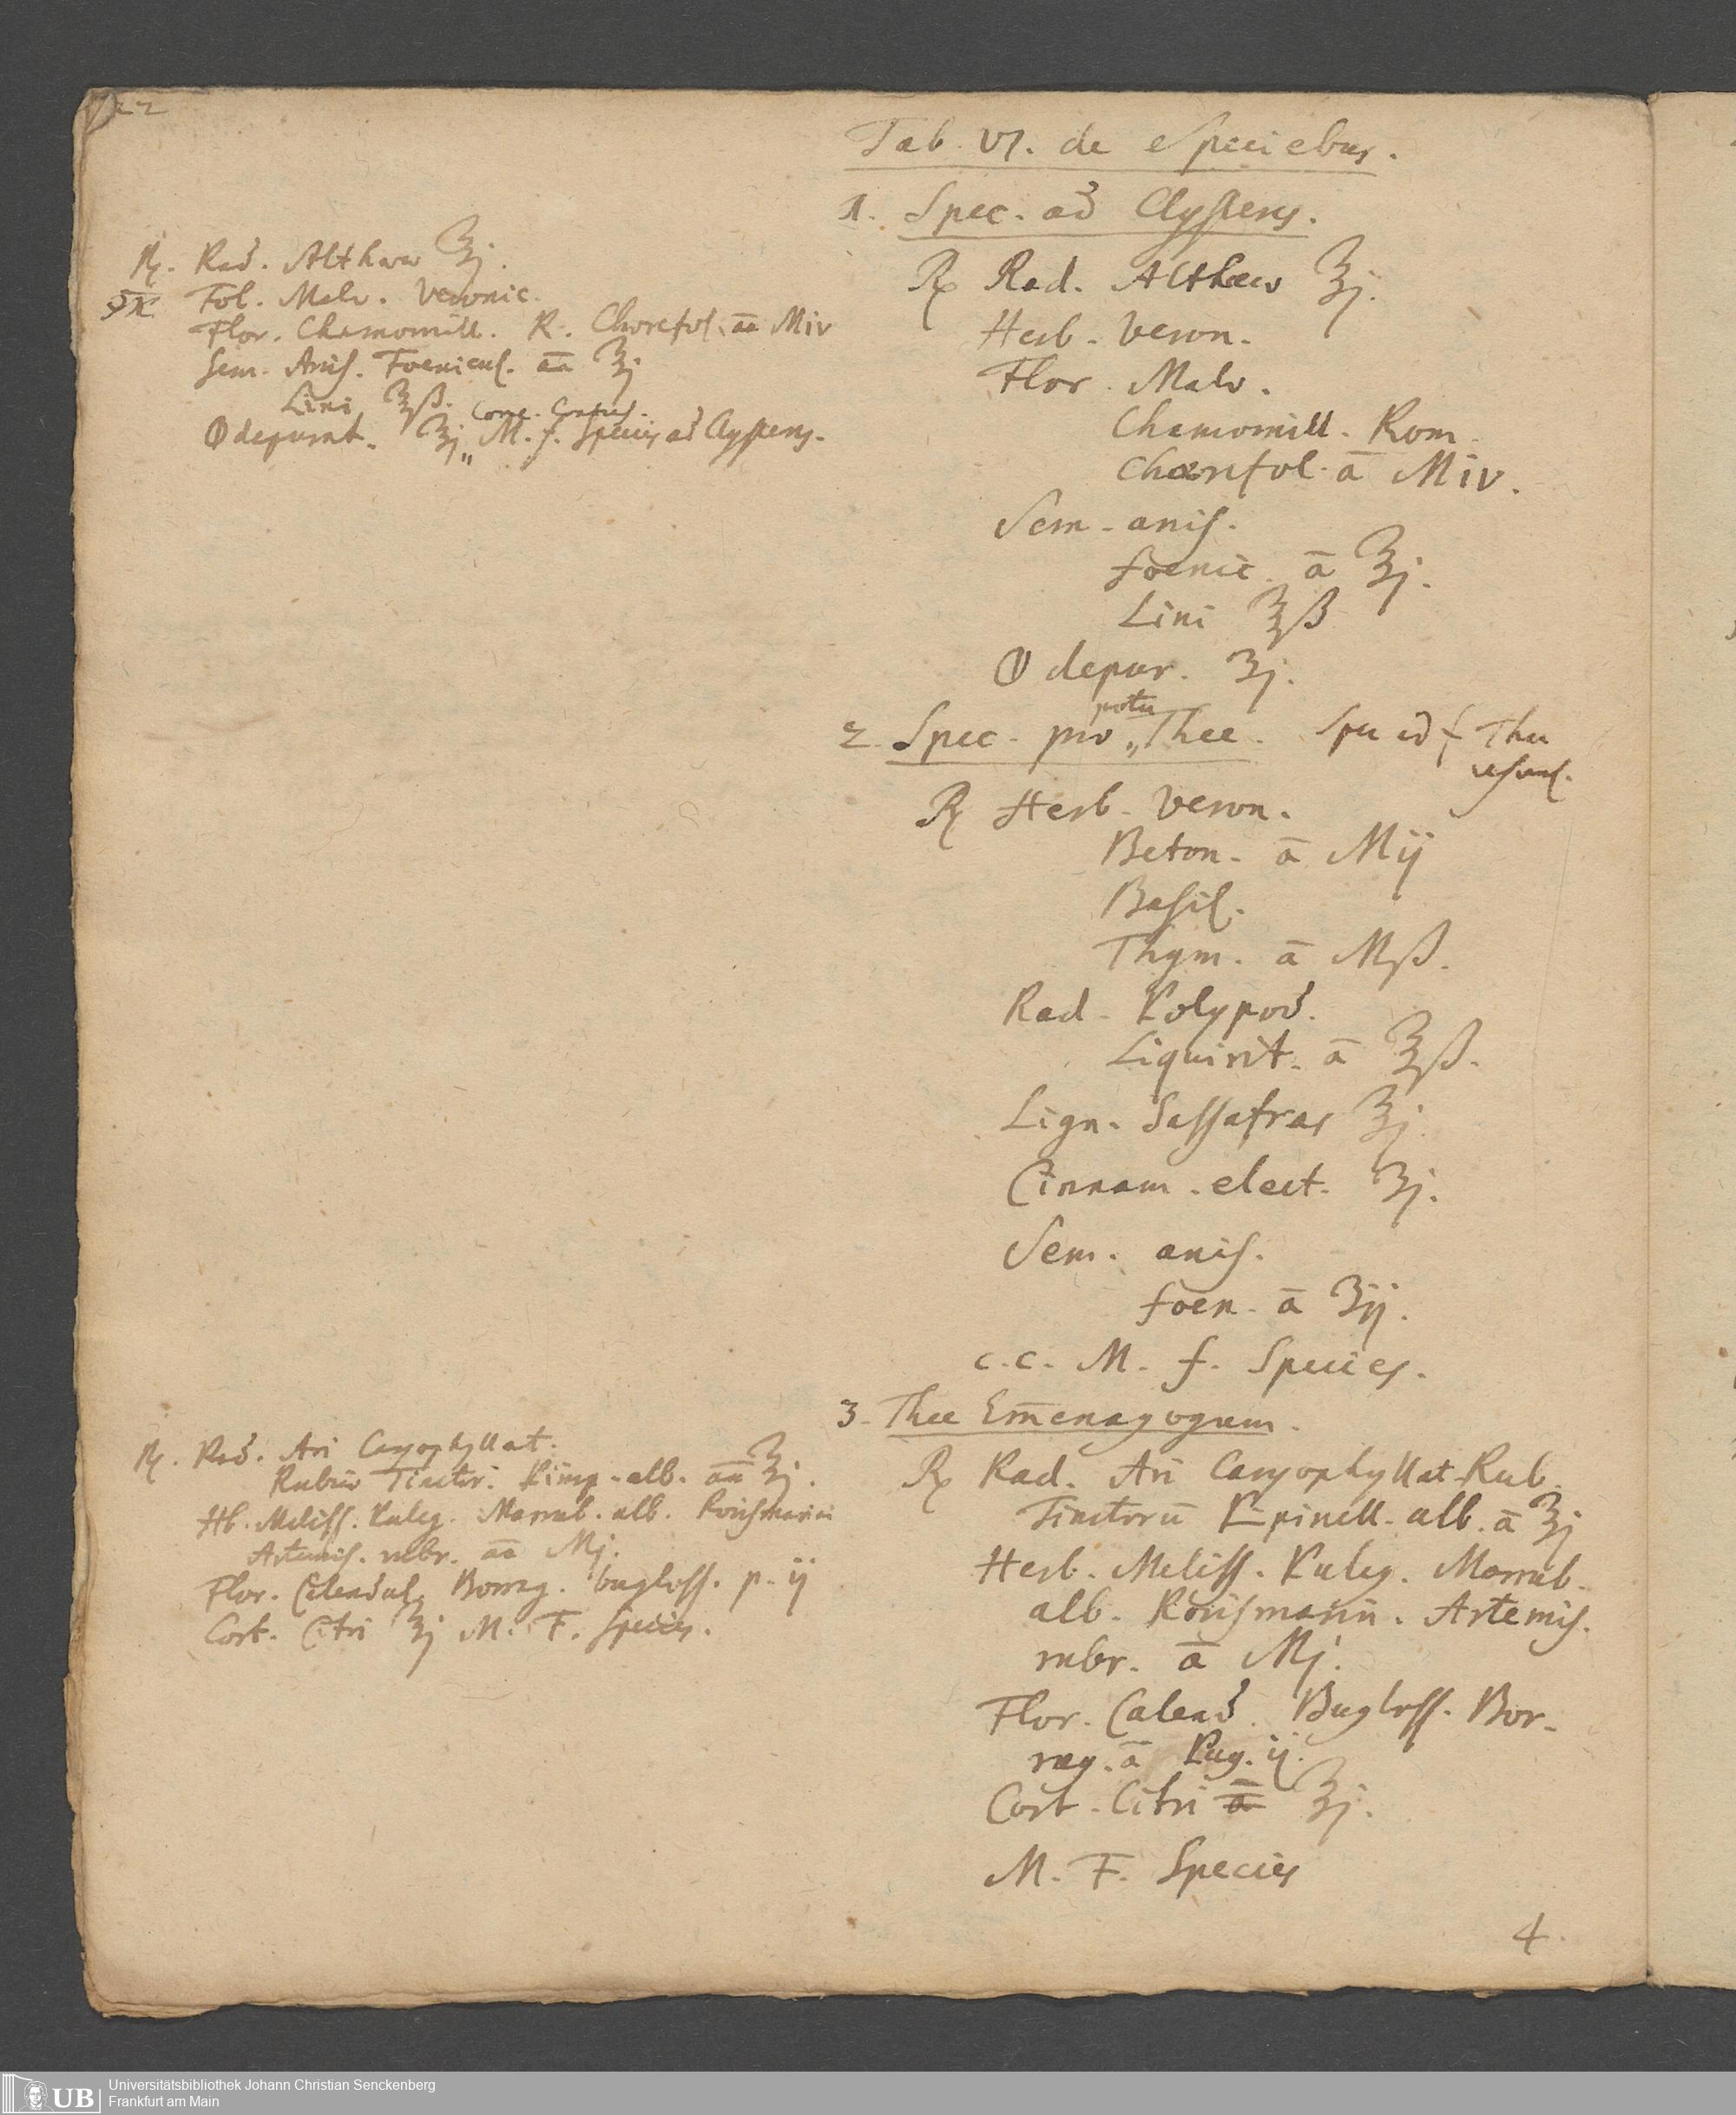 22
Tab. VI. de Speciebus.
1. Spec. ad Clysterf.
℞ Rad. Althææ ℥j.
Herb. Veron.
Flor. Malv.
Chamomill. Rom.
Chærefol. ā Miv.
Sem. anis.
foenic. ā ℥j.
Lini ℥ß
🜕 depur. ʒj.
2. Spec. pro potu Thee.
℞ Herb. Veron.
Beton. ā Mij
Basil.
Thym. ā Mß.
Rad. Polypod.
Liquirit. ā ℥ß.
Lign. Sassafras ℥j
Cinnam. elect. ʒj.
Sem. anis.
foen. ā ʒij.
c. c. M. f. Species.
3. Thee Em̄enagogum.
℞ Rad. Ari Caryophyllat. Rub.
Tinctorū Pimpinell. alb. ā ℥j
Herb. Meliss. Puleg. Marrub.
alb. Rorismarin. Artemis.
rubr. ā Mj.
Flor. Calend. Bugloss. Bor-
rag. ā Pug. ij.
Cort. Citri ā ℥j.
M. F. Species
4
℞. Rad. Althææ ℥j.
Fol. Malv. Veronic.
Flor. Chamomill. R. Chærefol. āā Miv
Sem. Anis. Foenicul. āā ℥j
Lini ℥ß.
🜕 depurat. ʒj Conc. Contus. M. f. Species ad Clysterf.
℞. Rad. Ari Caryophyllat.
Rubiæ Tinctor. Pimp. alb. āā ℥j.
Hb. Meliss. Puleg. Marrub. alb. Rorismarini
Artemis. rubr. āā Mj.
Flor. Calendul. Borrag. bugloss. p. ij
Cort. Citri ʒj M. F. Species.
UB
Universitätsbibliothek Johann Christian Senckenberg
Frankfurt am Main